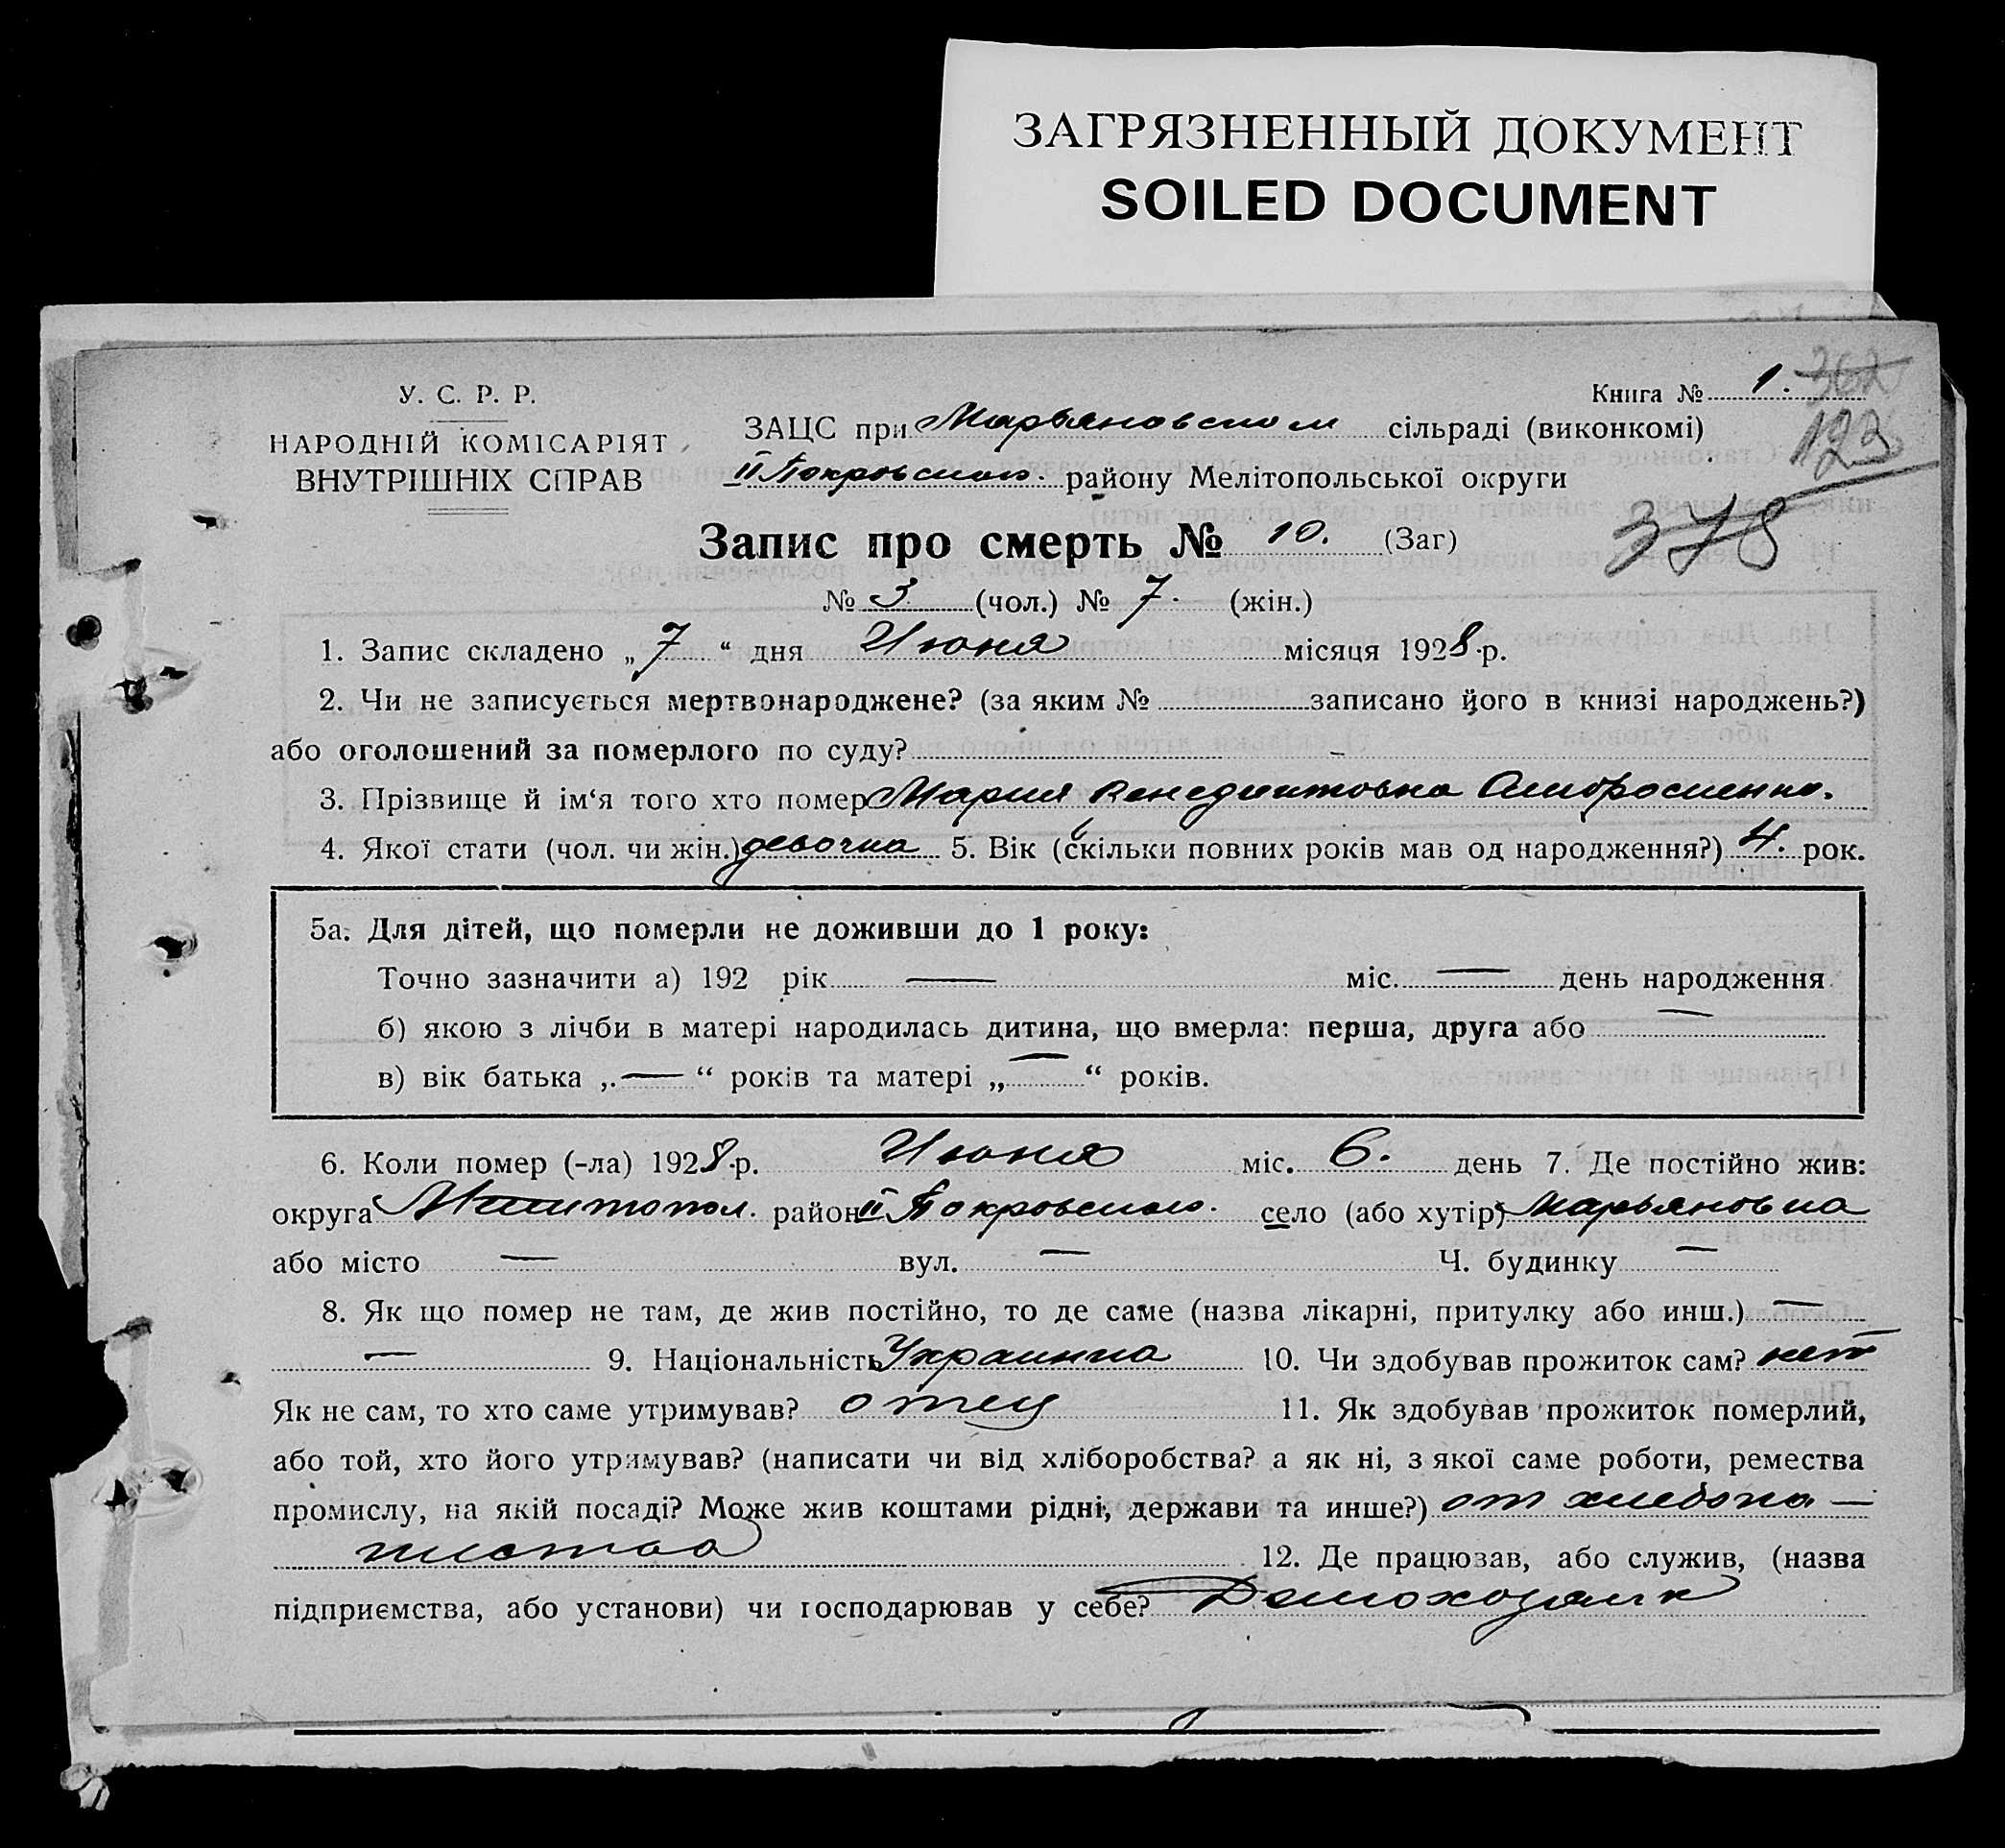 ЗАГРЯЗНЕННЫЙ ДОКУМЕНТ
SOILED DOCUMENT
У. С. Р. Р.
НАРОДНІЙ КОМІСАРІЯТ
ВНУТРІШНІХ СПРАВ
Книга № 1. 362
ЗАЦС при Марьяновском сільраді (виконкомі) 123
II Покровского. району Мелітопольської округи
378
Запис про смерть № 10. (Заг)
№ 3 (чол.) № 7. (жін.)
1. Запис складено „7“ дня Июня місяця 1928 р.
2. Чи не записується мертвонароджене? (за яким № записано його в книзі народжень?)
або оголошений за померлого по суду? –
3. Прізвище й ім‘я того хто помер Мария Венедиктовна Амбросиенко.
4. Якої стати (чол. чи жін.) девочка 5. Вік (скільки повних років мав од народження?) 4. рок.
5а. Для дітей, що померли не доживши до 1 року:
Точно зазначити а) 192 рік — міс. — день народження
б) якою з лічби в матері народилась дитина, що вмерла: перша, друга або —
в) вік батька „—“ років та матері „—“ років.
6. Коли помер (-ла) 1928 р. Июня міс. 6. день 7. Де постійно жив:
округа Мелитопол. район II Покровского. село (або хутір) Марьяновка
або місто — вул. — Ч. будинку —
8. Як що помер не там, де жив постійно, то де саме (назва лікарні, притулку або инш.) —
— 9. Національність Украинка 10. Чи здобував прожиток сам? нет
Як не сам, то хто саме утримував? отец 11. Як здобував прожиток померлий,
або той, хто його утримував? (написати чи від хліборобства? а як ні, з якої саме роботи, ремества
промислу, на якій посаді? Може жив коштами рідні, держави та инше?) от хлебопа—
шества 12. Де працював, або служив, (назва
підприємства, або установи) чи господарював у себе? Домохозяин